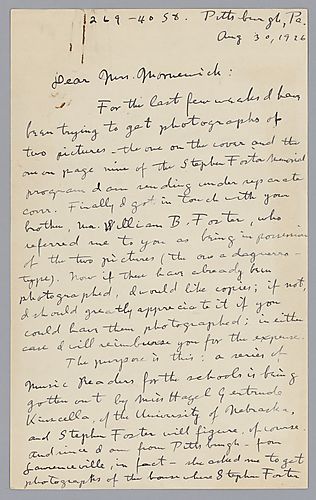 269-40 St. Pittsburgh, Pa.
Aug 30, 1926
Dear Mrs. Morneweck:
For the last few weeks I have
been trying to get photographs of
two pictures - the one on the cover and the
one on page nine of the Stephen Foster Memorial
program I am sending under separate
cover. Finally I got in touch with your
brother, Mr. William B. Foster, who
referred me to you as being in possession
of the two pictures (the one a daguerreo-
type). Now if these have already been
photographed, I would like copies; if not,
I should greatly appreciate it if you
could have them photographed; in either
case I will reimburse you for the expense.
The purpose is this: a series of
Music Readers for the schools is being
gotten out by Miss Hazel Gertrude
Kinscella, of the University of Nebraska,
and Stephen Foster will figure, of course.
And since I am from Pittsburgh - from
Lawrenceville, in fact - she asked me to get
photographs of the house where Stephen Foster